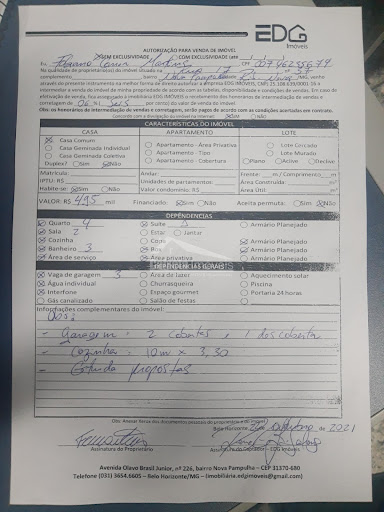 EDG
Imóveis
AUTORIZAÇÃO PARA VENDA DE IMÓVEL
SEM EXCLUSIVIDADE COM EXCLUSIVIDADE
Eu, CPF
Na qualidade de proprietário(s) do imóvel situado na nº
complemento, bairro Belo Horizonte/MG, venho
através do presente instrumento na melhor forma de direito autorizar a empresa EDG IMÓVEIS,
intermediar a venda do imóvel de minha propriedade de acordo com as tabelas, disponibilidade e condições de vendas. Em caso de
efetivação de venda, fica assegurado à imobiliária EDG IMÓVEIS o recebimento dos honorários de intermediação de vendas e
corretagem de 06 % ( seis por cento) do valor de venda do imóvel
Obs: os honorários de intermediação de vendas e corretagem, serão pagos de acordo com as condições acertadas em contrato.
Concorda com a divulgação do imóvel na internet? Sim Não
CARACTERÍSTICAS DO IMÓVEL
CASA APARTAMENTO LOTE
Casa Comum
Casa Geminada Individual Apartamento - Área Privativa Lote Cercado
Casa Geminada Coletiva Apartamento - Tipo Lote Murado
Duplex? Sim Não Apartamento - Cobertura Plano Aclive Declive
Matrícula: Andar: Frente: m/ Comprimento m
IPTU: R$ Unidades de apartamentos: Área Construída: m²
Habite-se: Sim Não Valor condomínio: R$ Área Útil: m²
VALOR: R$ 495 mil Financiado: Sim Não Aceita permuta: Sim Não
DEPENDÊNCIAS
Quarto 4 Suíte Armário Planejado
Sala 2 Estar Jantar
Cozinha Copa Armário Planejado
Banheiro 3 Box Armário Planejado
Área de serviço Área privativa
DEPENDÊNCIAS GERAIS
Vaga de garagem 3 Área de lazer Aquecimento solar
Água individual Churrasqueira Piscina
Interfone Espaço gourmet Portaria 24 horas
Gás canalizado Salão de festas
Informações complementares do imóvel:
- Garagem: 2 cobertas e 1 descoberta
- Cozinha: 10m x 3,30
- Estuda propostas
Belo Horizonte, de de 2021
Assinatura do Proprietário Assinatura do Corretor - EDG Imóveis
Avenida Olavo Brasil Junior, nº 226, bairro Nova Pampulha – CEP 31370-680
Telefone (031) 3654.6605 – Belo Horizonte/MG – imobiliaria.edgimoveis@gmail.com